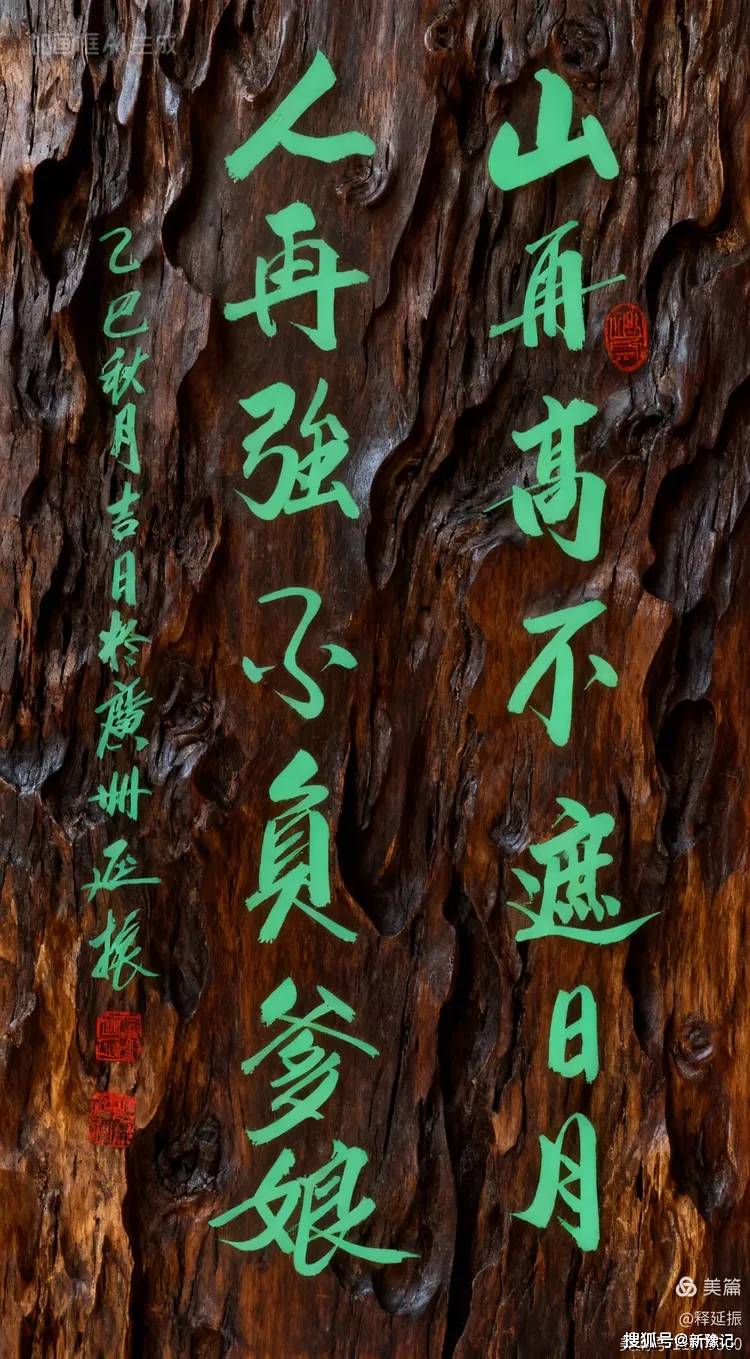 山再高不遮日月
人再強不負爹娘
乙巳秋月吉日於廣州延振
美篇
@释延振
搜狐号@新豫记